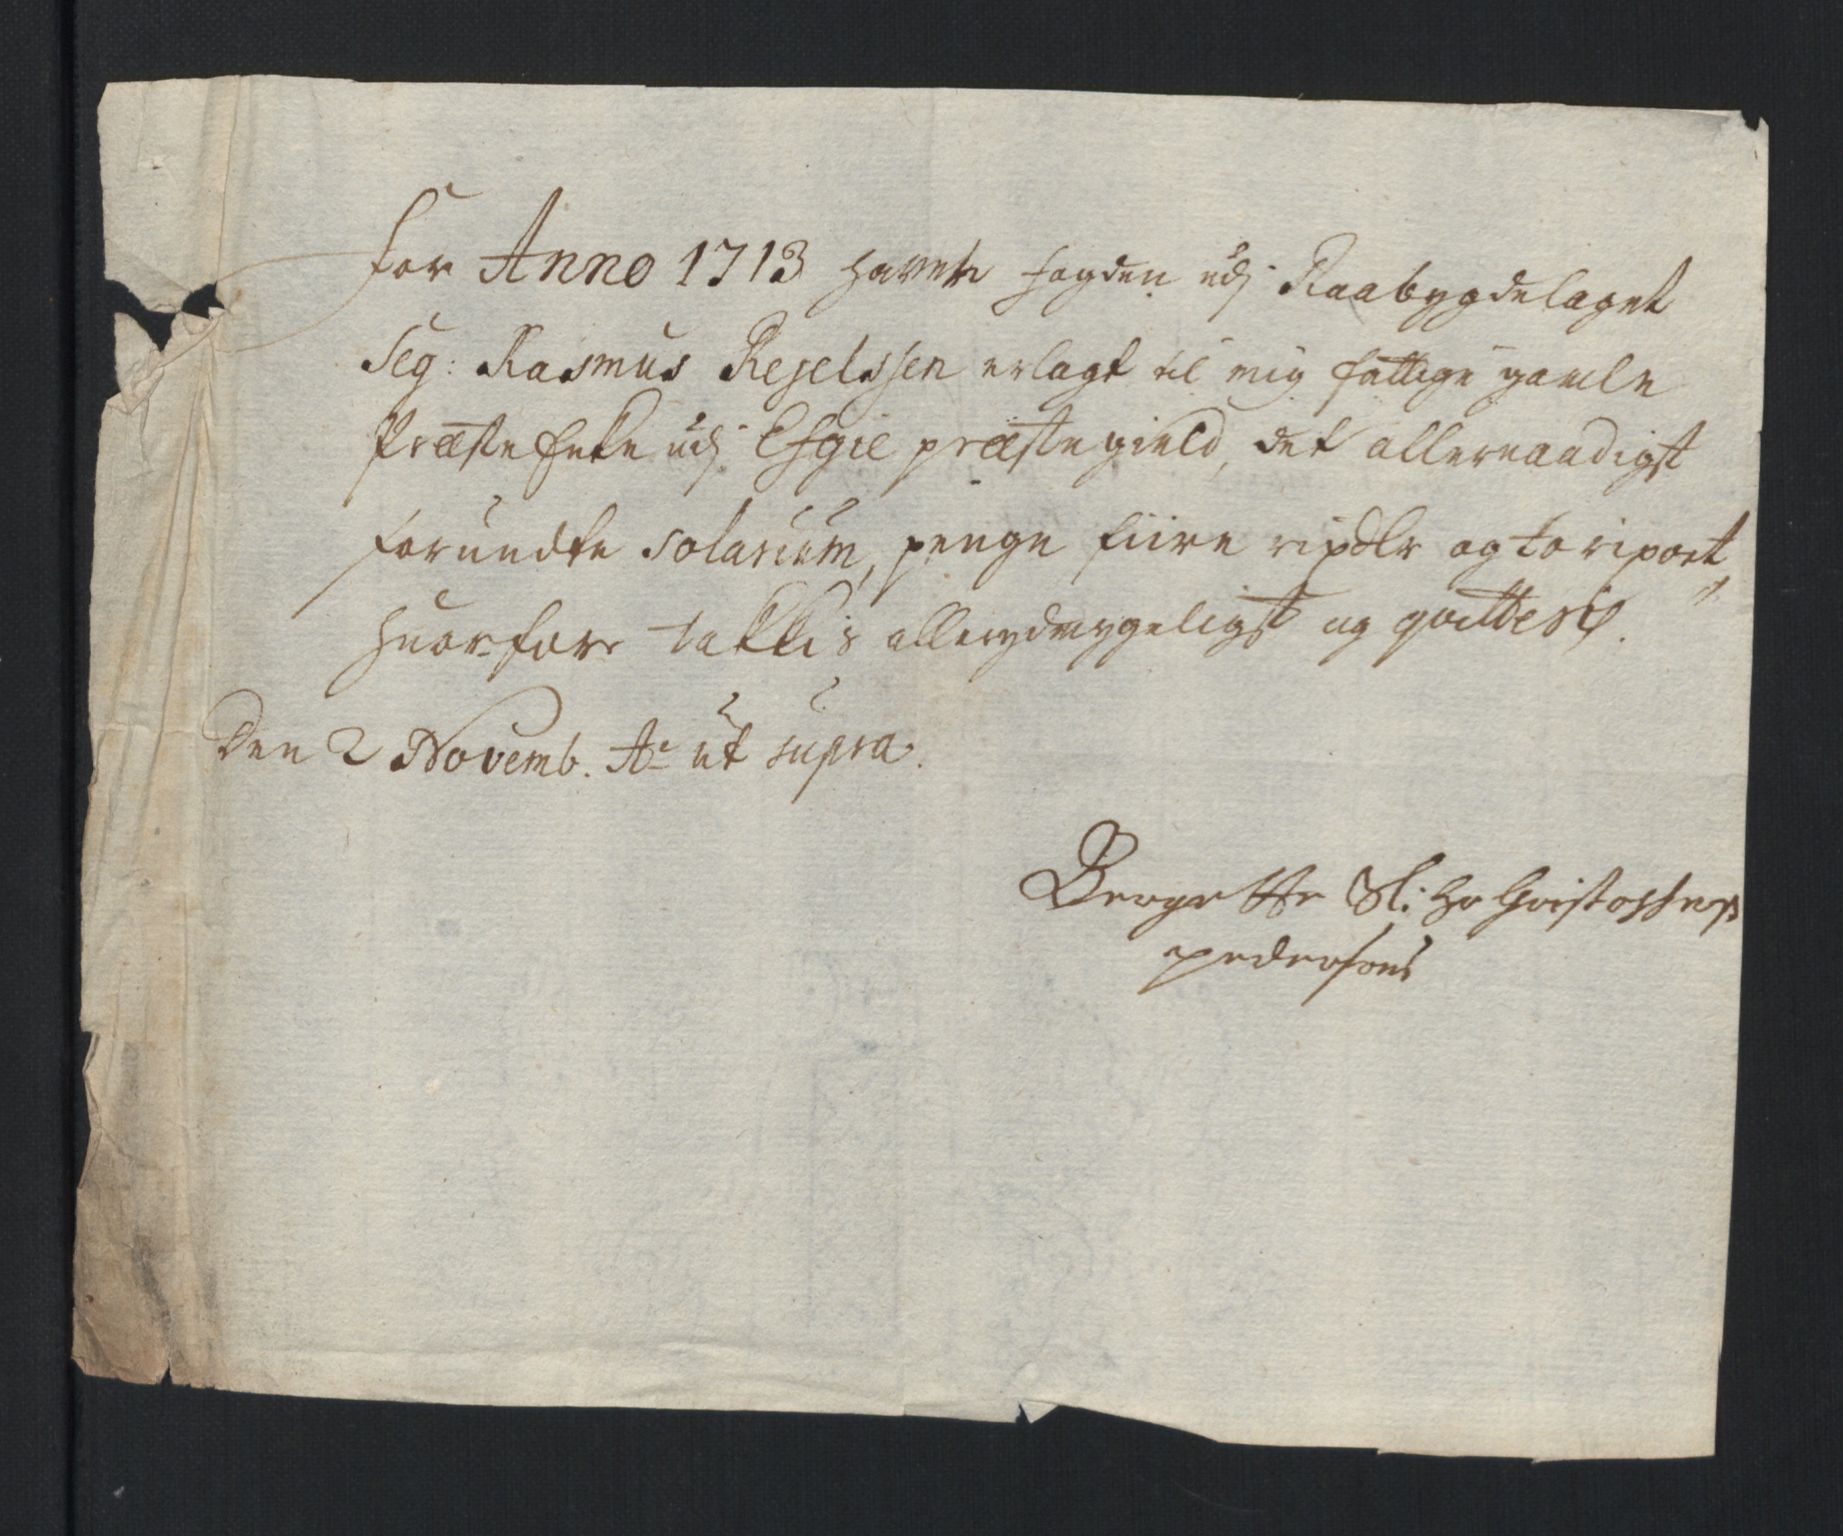 For Anno 1713 hafver fogden udj Raabygdelaget
Seg: Rasmus Rejelssen erlagt til mig fattige gamle
Præste Encke udj Efgie præstegield, det allernaadigst
forundte solarium, penge fiire rixdlr og to rixort
huorfore takkis allerydmygeligst og qvitteris.
Den 2 Novemb. Ao ut supra.
Bergette Sl: Hr Christoffers
pedersøns